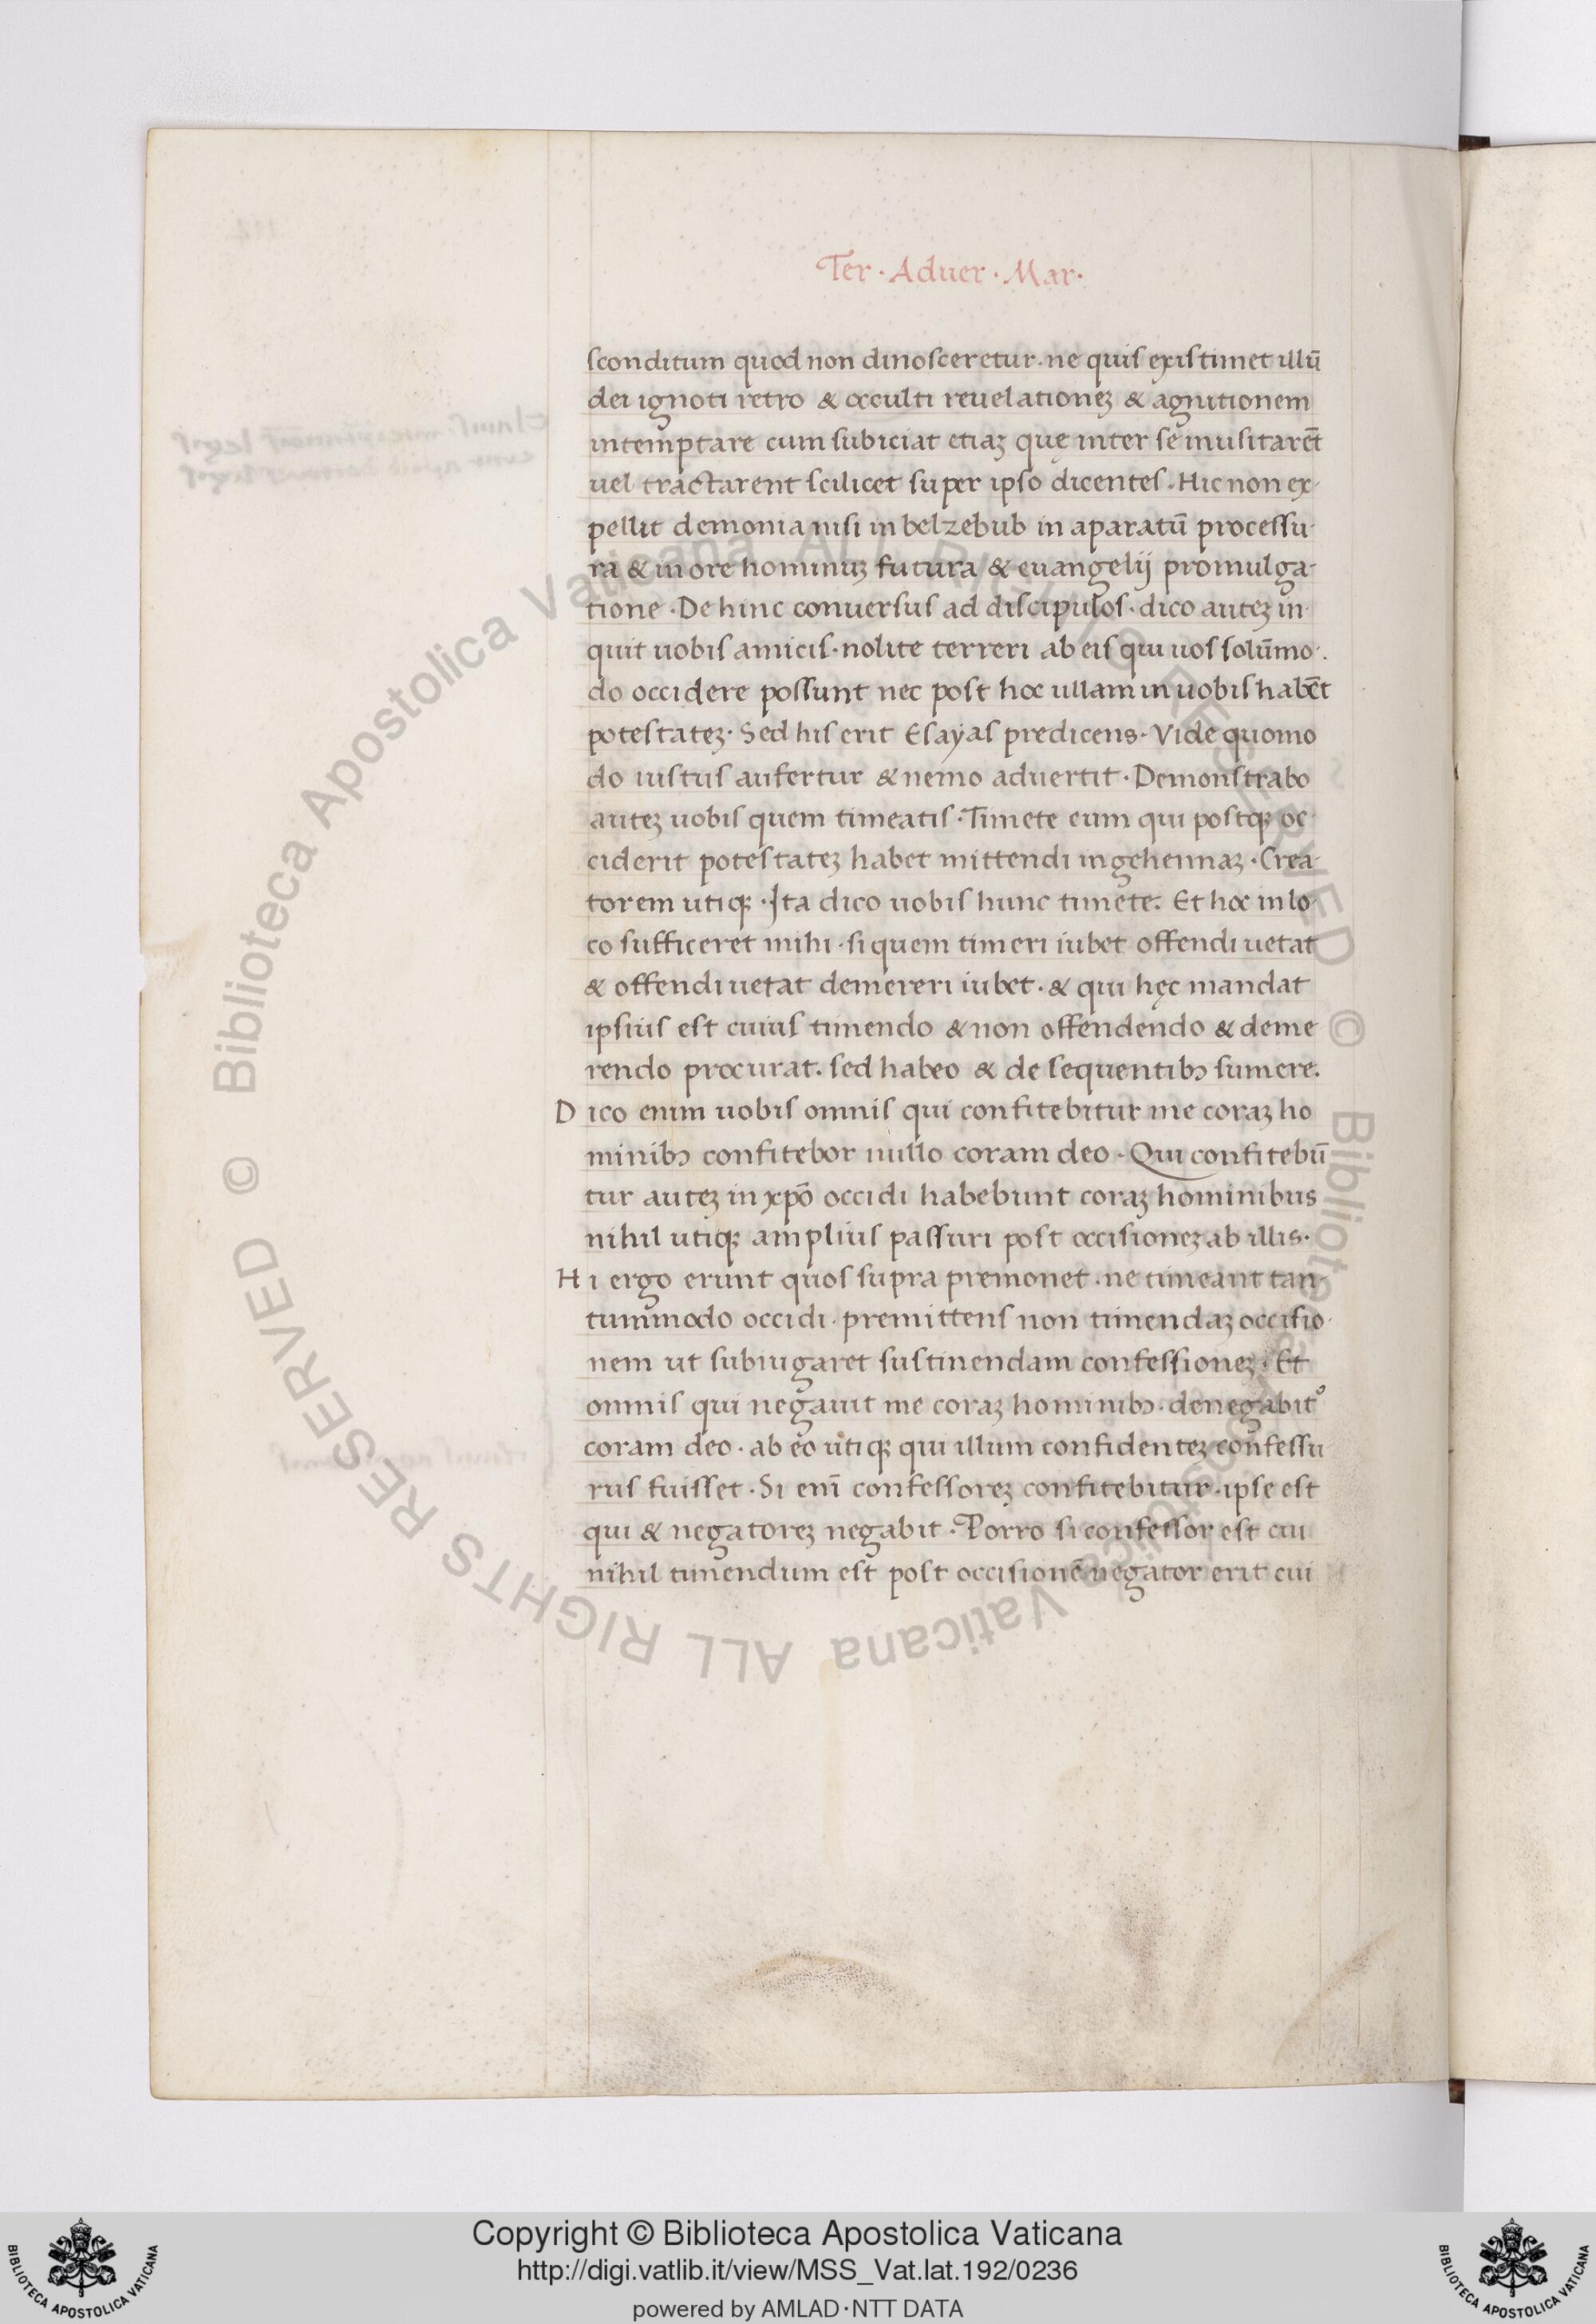 Ter · Aduer · Mar ·
sconditum quod non dinosceretur · ne quis existimet illū
dei ignoti retro & occulti reuelationeꝫ & agnitionem
intemptare cum subiciat etiaꝫ quę inter se musitarēt
uel tractarent scilicet super ipso dicentes · Hic non ex-
pellit demonia nisi in belzebub in aparatū processu-
ra & in ore hominuꝫ futura & euangelij promulga-
tione · De hinc conuersus ad discipulos · dico auteꝫ in-
quit uobis amicis · nolite terreri ab eis qui uos solūmo-
do occidere possunt nec post hoc ullam in uobis habēt
potestateꝫ · Sed his erit Esayas predicens · Vide quomo
do iustus aufertur & nemo aduertit · Demonstrabo
auteꝫ uobis quem timeatis · Timete eum qui postqꝫ oc-
ciderit potestateꝫ habet mittendi in gehennaꝫ · Crea-
torem utiqꝫ · Ita dico uobis hunc timete. Et hoc in lo-
co sufficeret mihi · si quem timeri iubet offendi uetat
& offendi uetat demereri iubet · & qui hęc mandat
ipsius est cuius timendo & non offendendo & deme
rendo procurat. sed habeo & de sequentibꝰ sumere.
Dico enim uobis omnis qui confitebitur me coraꝫ ho
minibꝰ confitebor nullo coram deo · Qui confitebū
tur auteꝫ in xp̄o occidi habebunt coraꝫ hominibus
nihil utiqꝫ amplius passuri post occisioneꝫ ab illis ·
Hi ergo erunt quos supra premonet · ne timeant tan-
tummodo occidi · premittens non timendaꝫ occisio-
nem ut subiugaret sustinendam confessioneꝫ · Et
omnis qui negauit me coraꝫ hominibꝰ · denegabitᷣ
coram deo · ab eo utiqꝫ qui illum confidenteꝫ confessu
rus fuisset · Si enī confessoreꝫ confitebitur · ipse est
qui & negatoreꝫ negabit · Porro si confessor est cui
nihil timendum est post occisionē negator erit cui
Copyright © Biblioteca Apostolica Vaticana
http://digi.vatlib.it/view/MSS_Vat.lat.192/0236
powered by AMLAD·NTT DATA